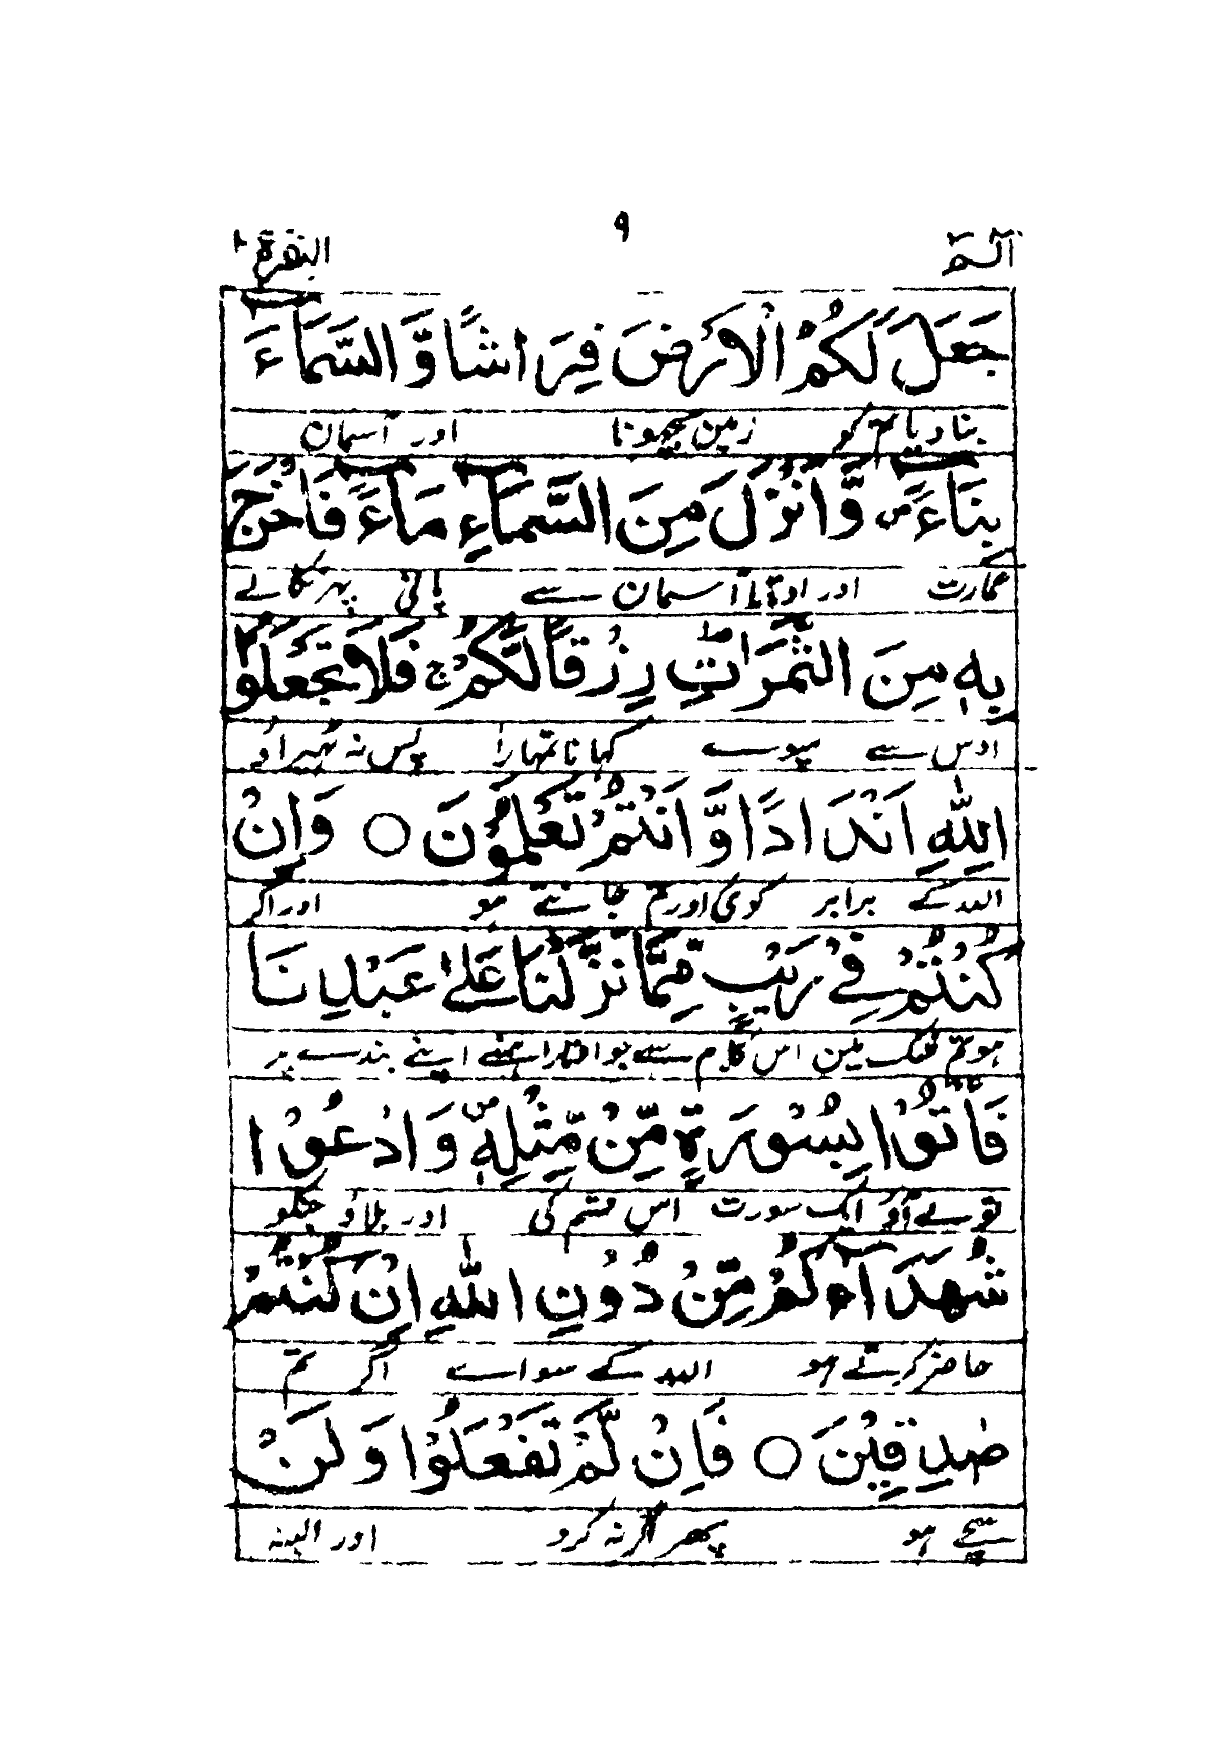 الٓـمّٓ ٩ البقرة ٢
جَعَلَ لَكُمُ الْاَرْضَ فِرَاشًا وَّ السَّمَآءَ
بنا دیا تم کو زمین بچھونا اور آسمان
بِنَآءً ص وَّ اَنْزَلَ مِنَ السَّمَآءِ مَآءً فَاَخْرَجَ
عمارت اور اوتارا آسمان سے پانی پہر نکالے
بِهٖ مِنَ الثَّمَرٰتِ رِزْقًا لَّكُمْ ج فَلَا تَجْعَلُوْا
اوس سے میوے کہانا تمہارا پس نہ ٹہیراؤ
لِلّٰهِ اَنْدَادًا وَّ اَنْتُمْ تَعْلَمُوْنَ ○ وَاِنْ
اللہ کے برابر کوئی اور تم جانتے ہو اور اگر
كُنْتُمْ فِيْ رَيْبٍ مِّمَّا نَزَّلْنَا عَلٰى عَبْدِنَا
ہو تم شک مین اس کلام سے جو اتارا ہمنے اپنے بندے پر
فَاْتُوْا بِسُوْرَةٍ مِّنْ مِّثْلِهٖ ص وَادْعُوْا
تو لے آؤ ایک سورت اس قسم کی اور بلاؤ جنکو
شُهَدَآءَكُمْ مِّنْ دُوْنِ اللّٰهِ اِنْ كُنْتُمْ
حاضر کرتے ہو اللہ کے سواے اگر تم
صٰدِقِيْنَ ○ فَاِنْ لَّمْ تَفْعَلُوْا وَلَنْ
سچے ہو پھر اگر نہ کرو اور البتہ